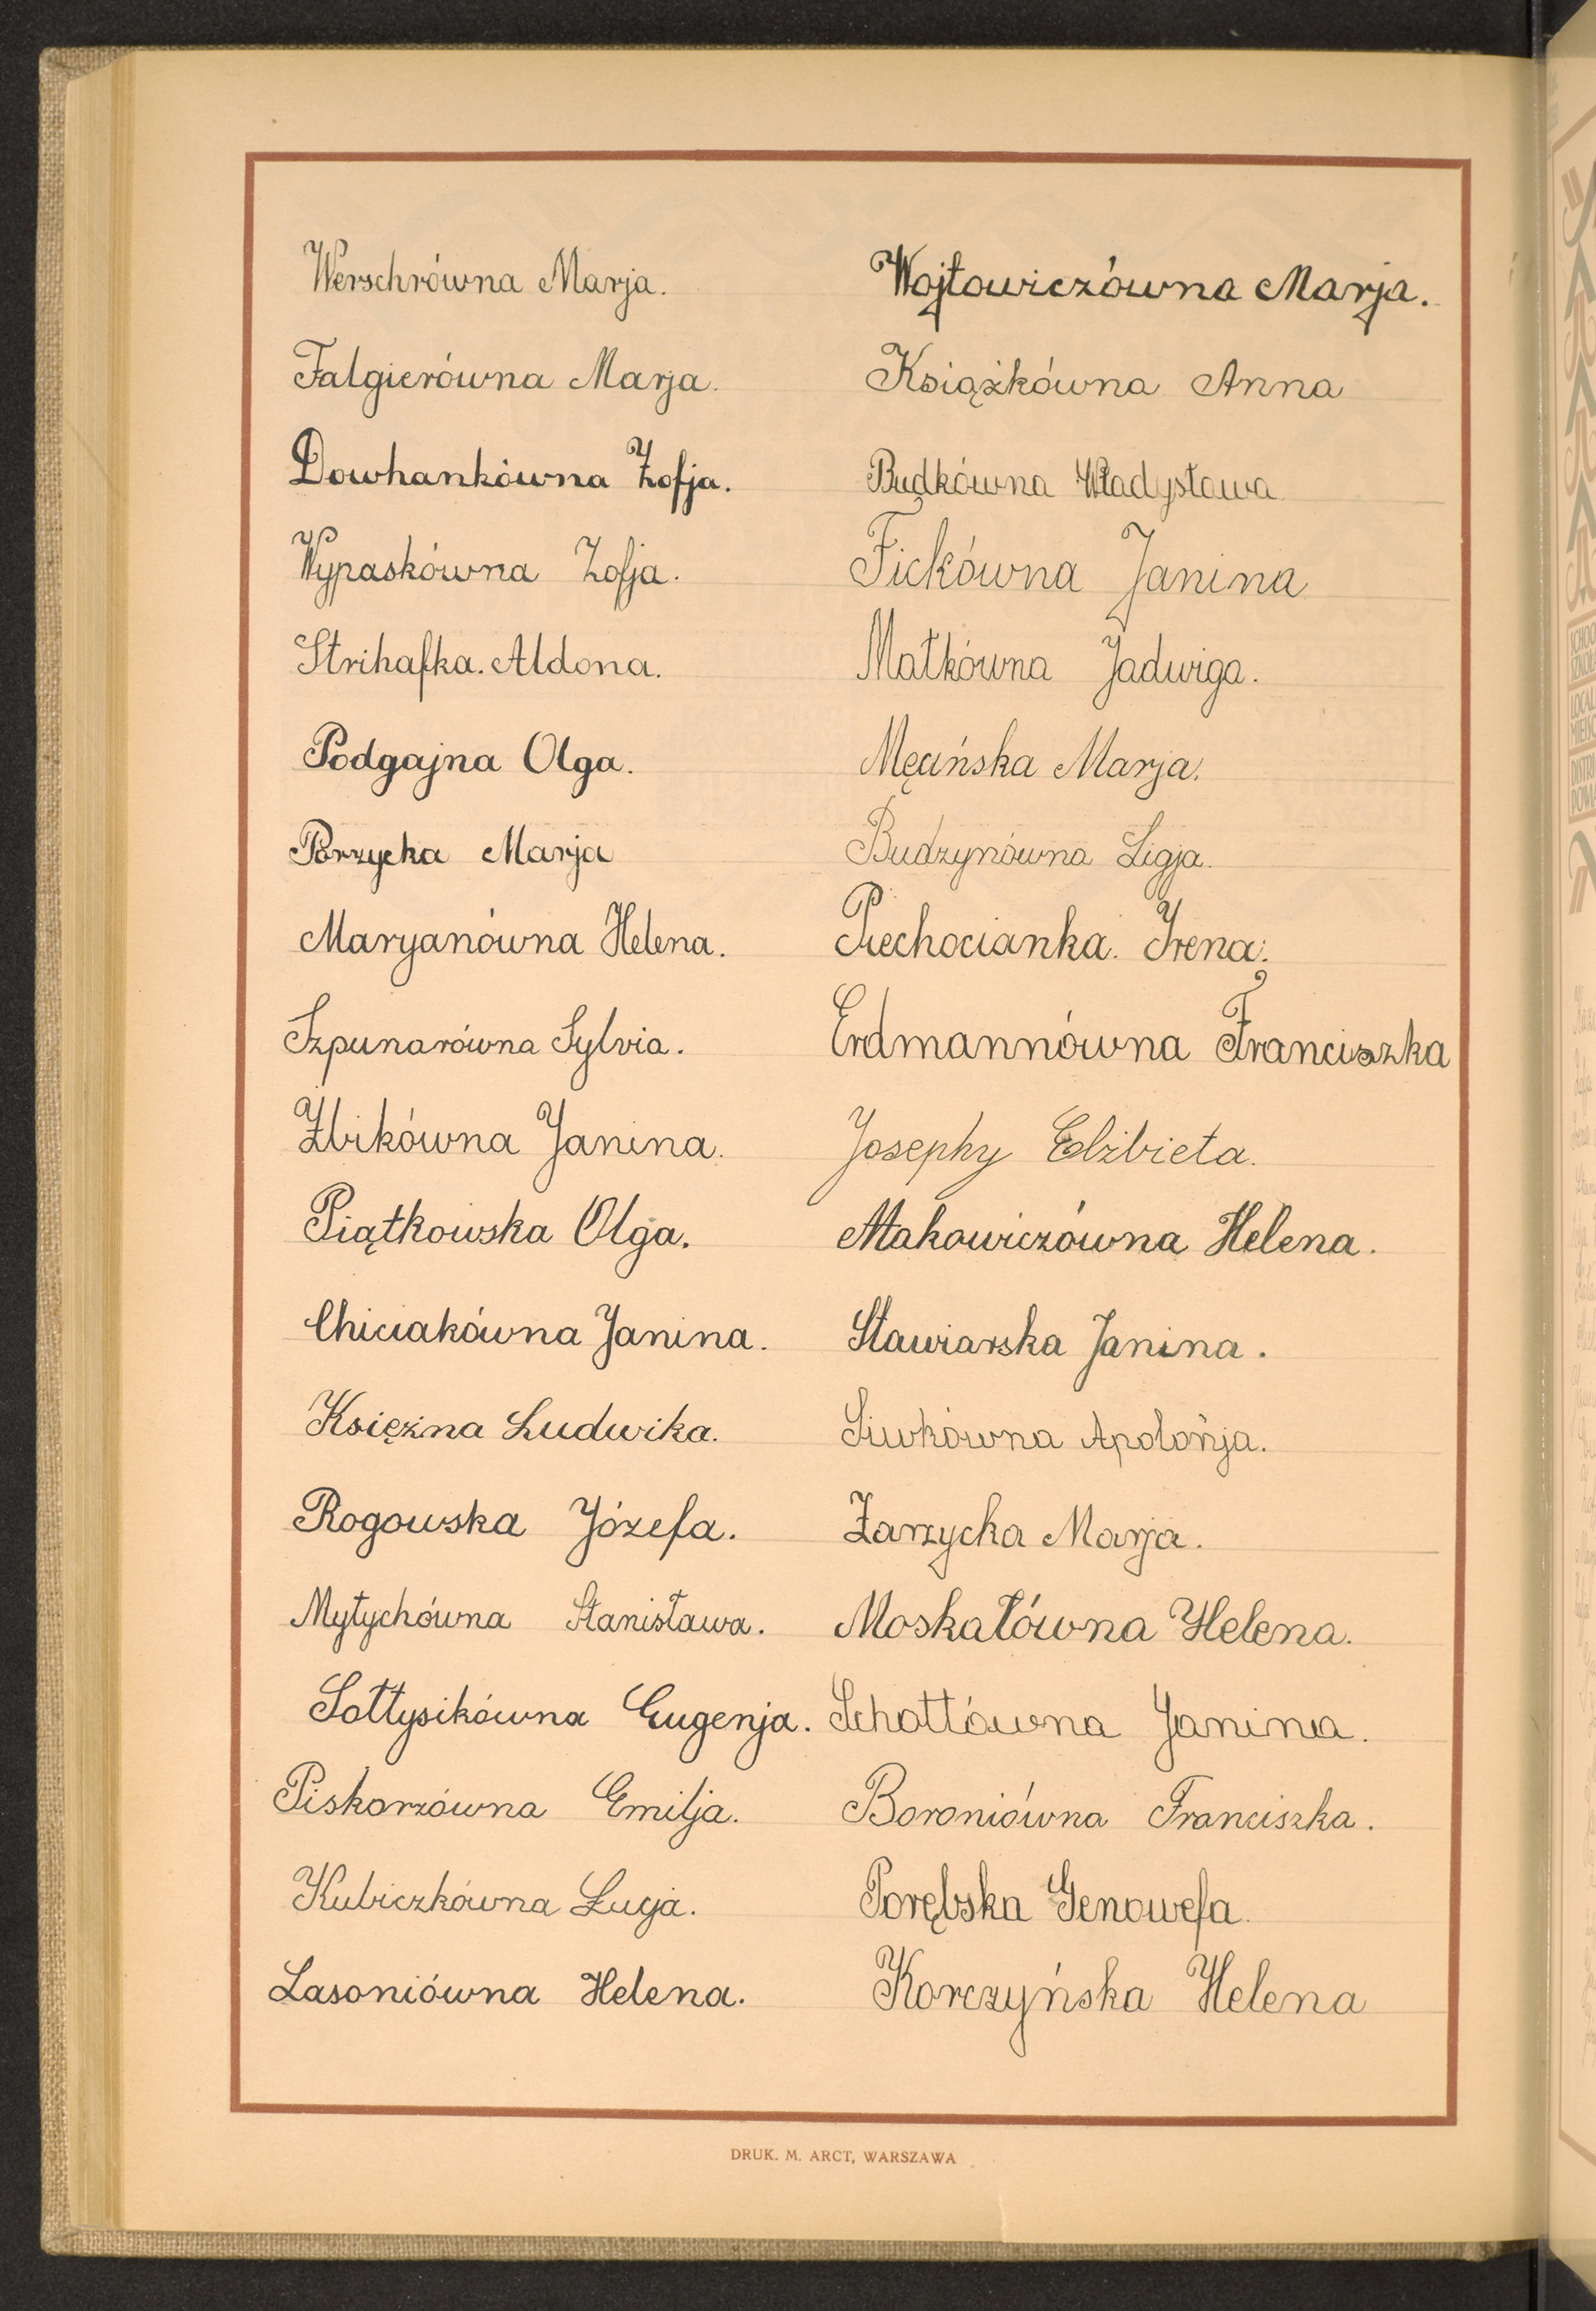 Werschrówna Marja.
Falgierówna Marja.
Dowhankówna Zofja.
Wypaskówna Zofja.
Strihafka. Aldona.
Podgajna Olga.
Porzycka Marja
Maryanówna Helena.
Szpunarówna Sylvia.
Żbikówna Janina.
Piątkowska Olga.
Chiciakówna Janina.
Księżna Ludwika.
Rogowska Józefa.
Mytychówna Stanisława.
Sołtysikówna Eugenja.
Piskorzówna Emilja.
Kubiczkówna Łucja.
Lasoniówna Helena.
Wojtowiczówna Marja.
Książkówna Anna
Budkówna Władysława.
Fickówna Janina
Matkówna Jadwiga.
Męcińska Marja.
Budzynówna Ligja.
Piechocianka. Irena.
Erdmannówna Franciszka
Josephy Elżbieta.
Makowiczówna Helena.
Stawiarska Janina.
Siwkówna Apolonja.
Zarzycka Marja.
Moskałówna Helena.
Schottówna Janina.
Boroniówna Franciszka.
Porębska Genowefa.
Korczyńska Helena
DRUK. M. ARCT, WARSZAWA